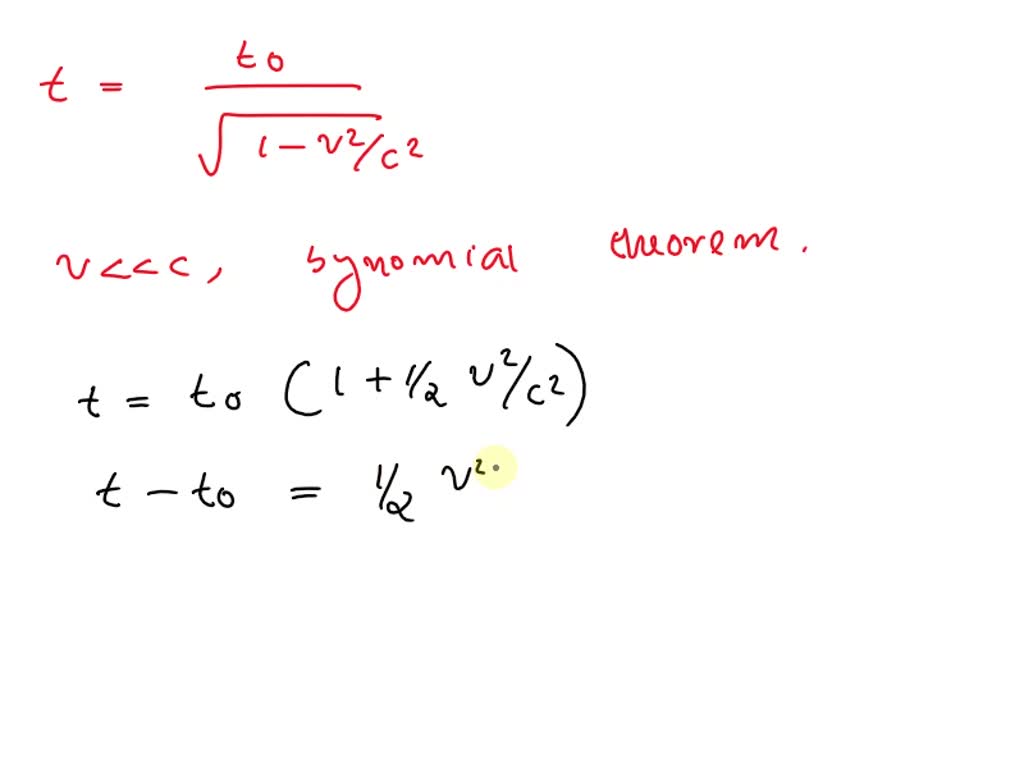 t = to / √1 - v²/c²
v <<< c, bynomial theorem.
t = to (1 + 1/2 v²/c²)
t - to = 1/2 v²